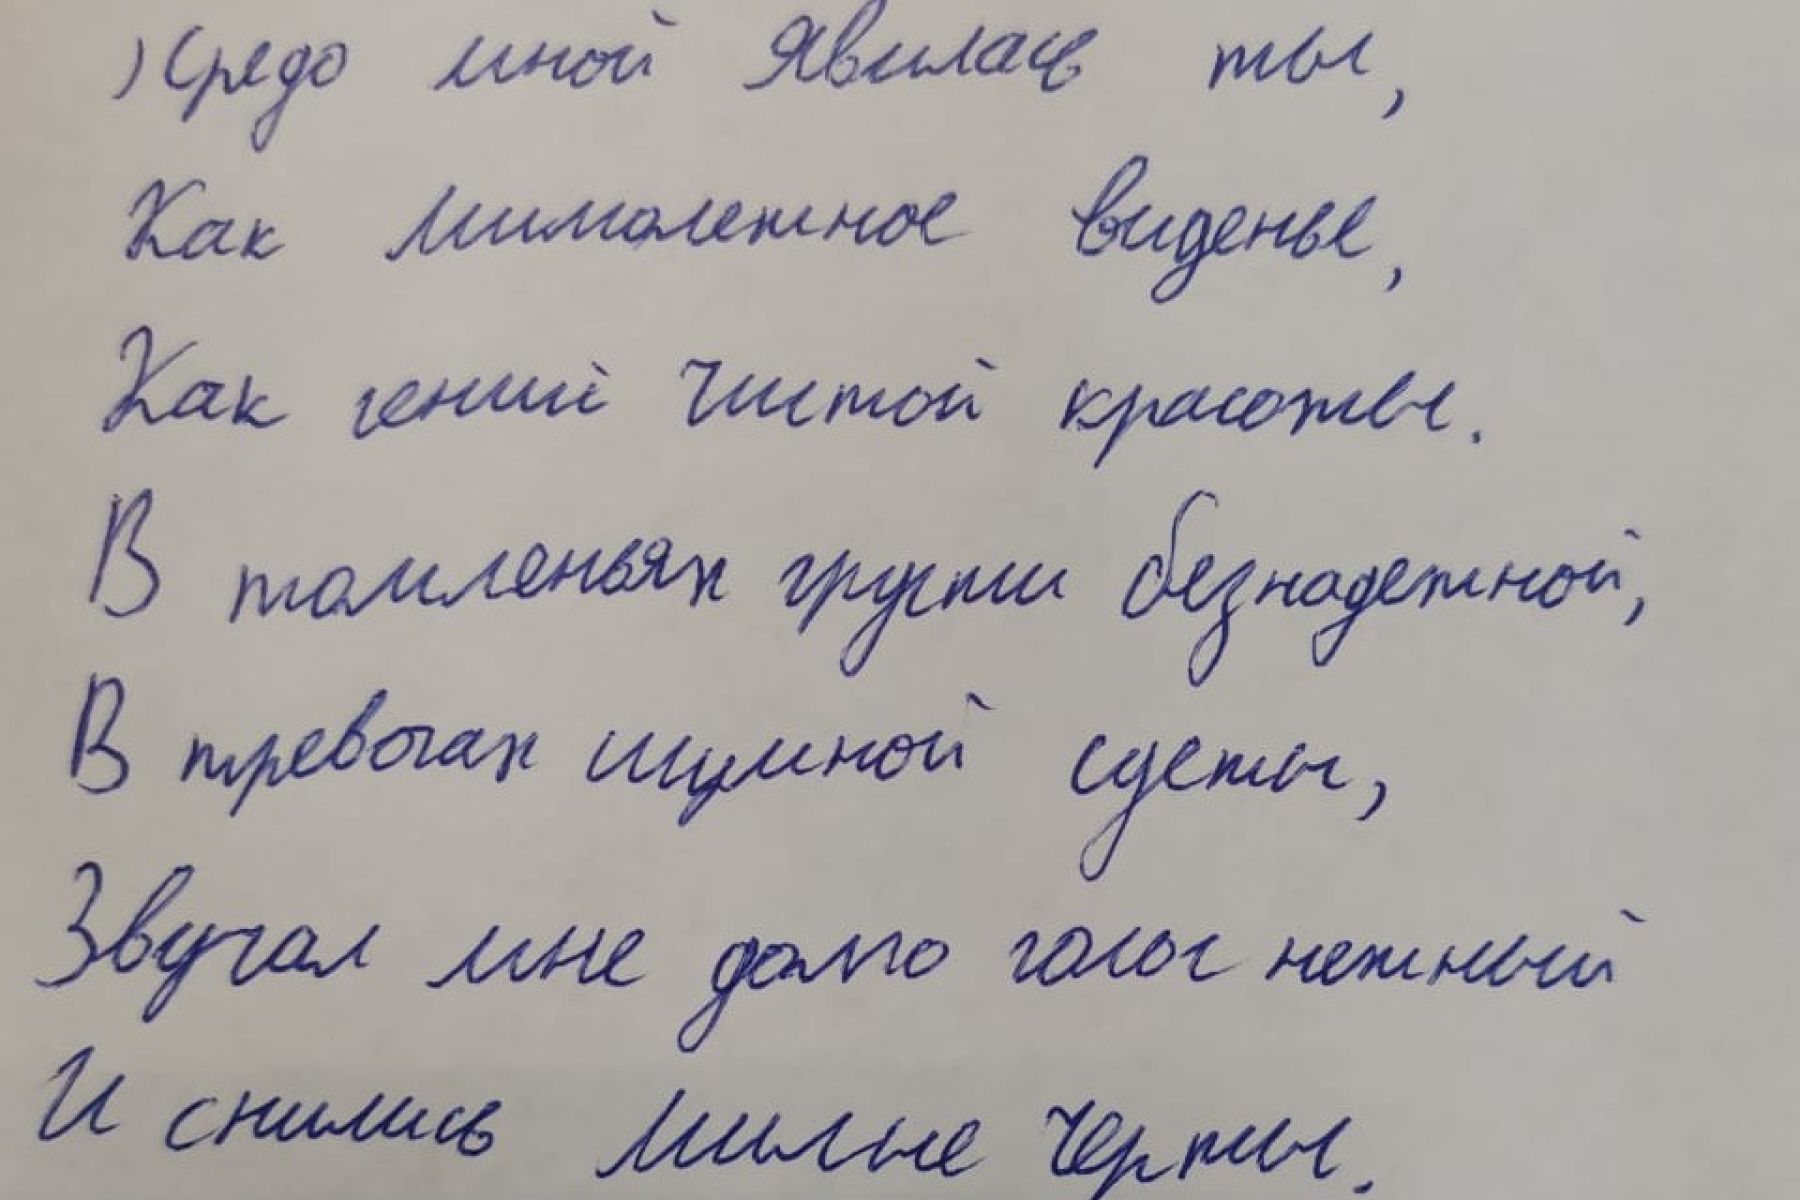 Передо мной явилась ты,
Как мимолетное виденье,
Как гений чистой красоты.
В томленьях грусти безнадежной,
В тревогах шумной суеты,
Звучал мне долго голос нежный
И снились милые черты.